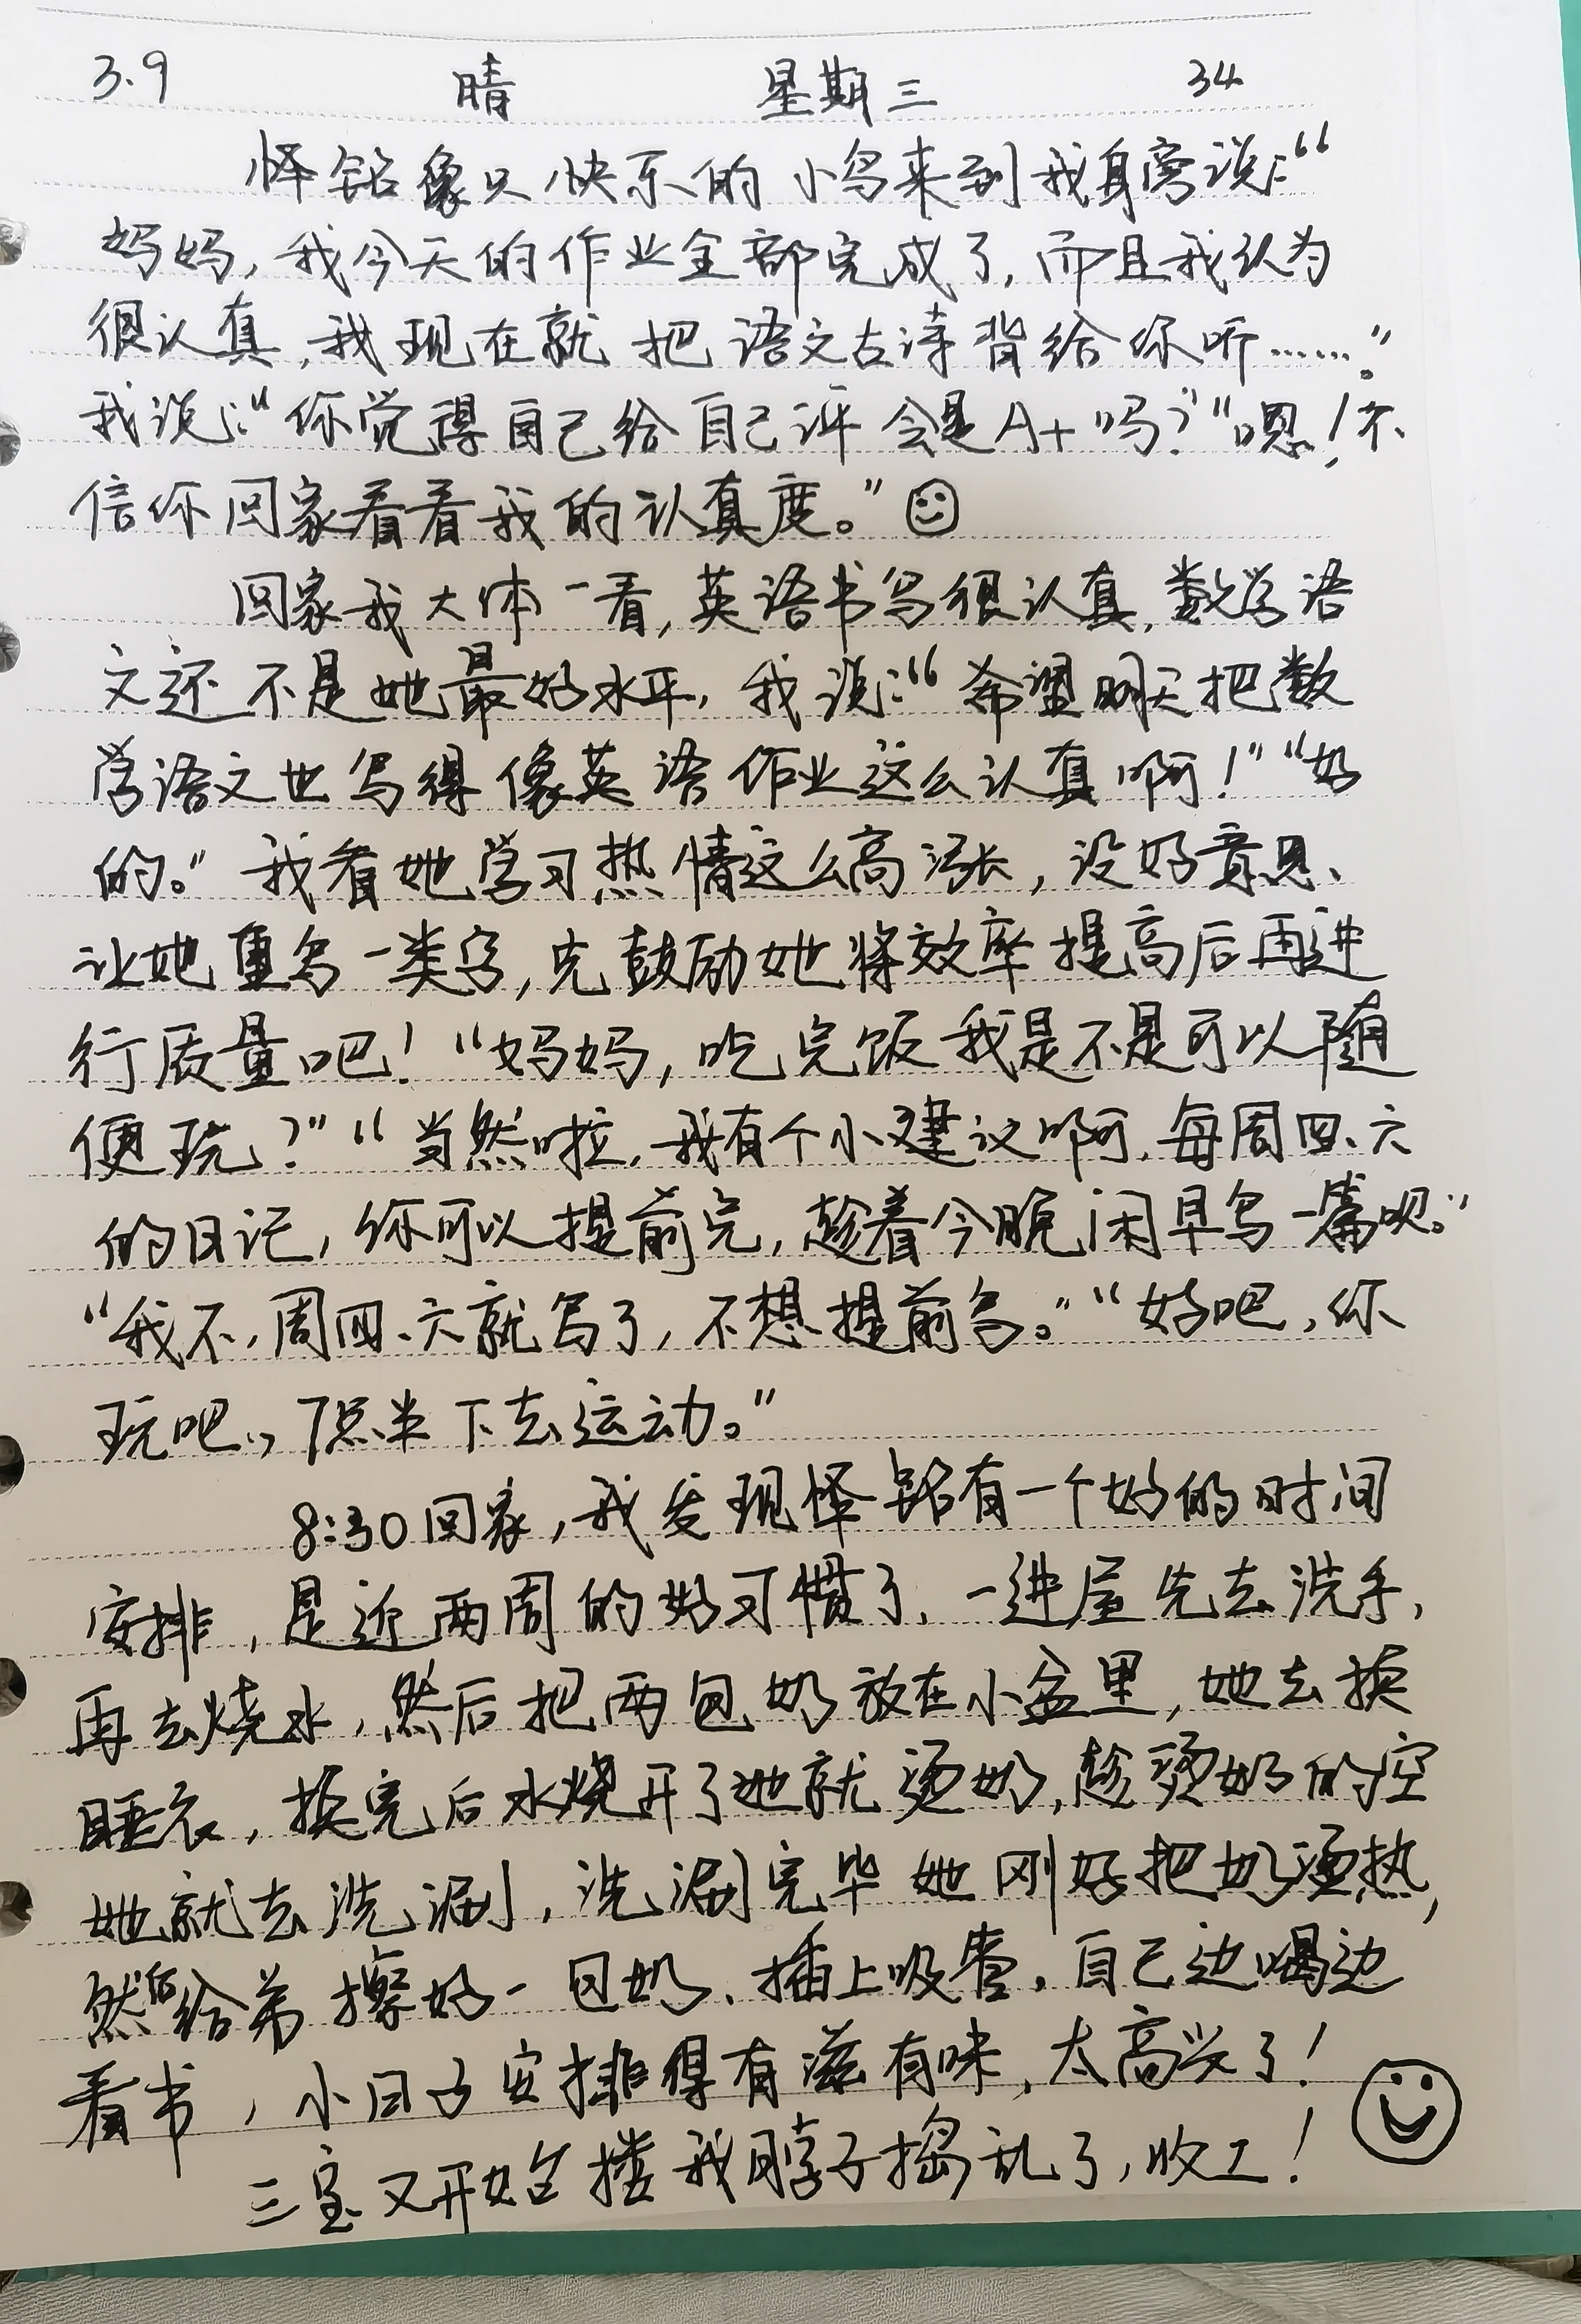 3.9 晴 星期三 34
怿铭像只快乐的小鸟来到我身旁说:“
妈妈,我今天的作业全部完成了,而且我认为
很认真,我现在就把语文古诗背给你听……。”
我说:“你觉得自己给自己评会是A+吗?”“嗯!不
信你回家看看我的认真度。”
回家我大体一看,英语书写很认真,数学语
文还不是她最好水平,我说:“希望明天把数
学语文也写得像英语作业这么认真啊!”“好
的。”我看她学习热情这么高涨,没好意思、
让她重写一类字,先鼓励她将效率提高后再进
行质量吧!“妈妈,吃完饭我是不是可以随
便玩?”“当然啦,我有个小建议啊,每周四、六
的日记,你可以提前完,趁着今晚闲早写一篇呗。”
“我不,周四、六就写了,不想提前写。”“好吧,你
玩吧,7点半下去运动。”
8:30回家,我发现怿铭有一个好的时间
安排,是近两周的好习惯了,一进屋先去洗手,
再去烧水,然后把两包奶放在小盆里,她去换
睡衣,换完后水烧开了她就烫奶,趁烫奶的空
她就去洗漱,洗漱完毕她刚好把奶烫热,
然后给弟擦好一包奶、插上吸管,自己边喝边
看书,小日子安排得有滋有味,太高兴了!
三宝又开始搂我脖子捣乱了,收工!